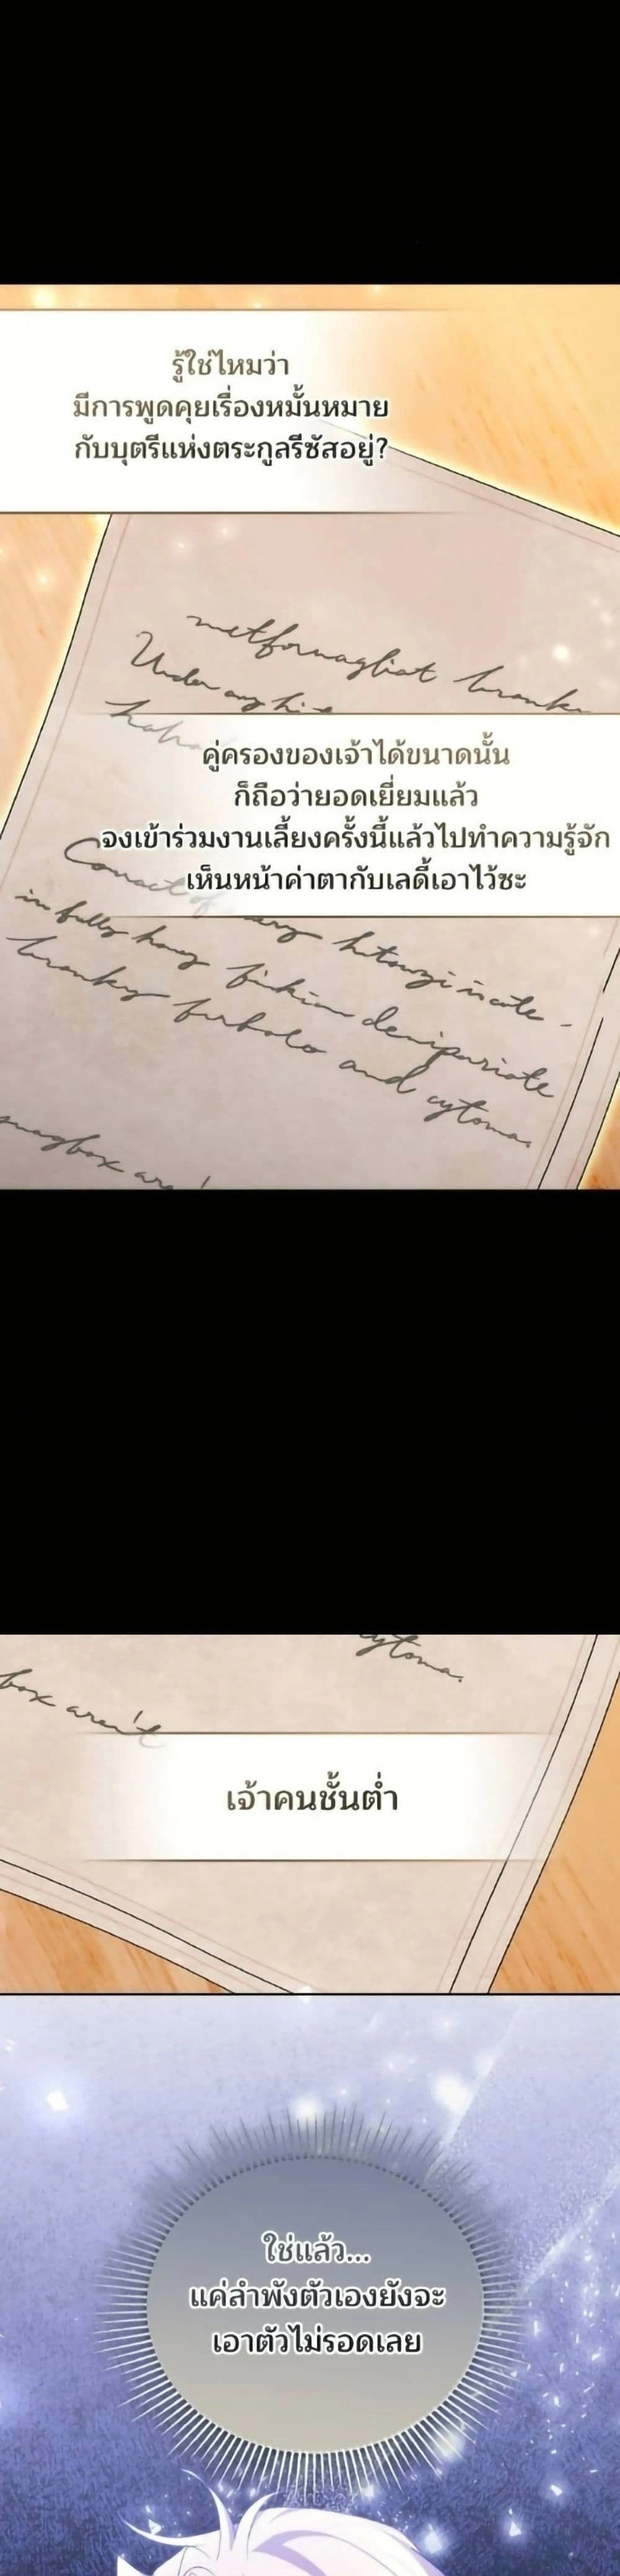 รู้ใช่ไหมว่า
มีการพูดคุยเรื่องหมั้นหมาย
กับบุตรีแห่งตระกูลรีซัสอยู่?
Under any hi
คู่ครองของเจ้าได้ขนาดนั้น
ก็ถือว่ายอดเยี่ยมแล้ว
จงเข้าร่วมงานเลี้ยงครั้งนี้แล้วไปทำความรู้จัก
เห็นหน้าค่าตากับเลดี้เอาไว้ซะ
and cytoma.
box aren't
cytoma.
box aren't
เจ้าคนชั้นต่ำ
ใช่แล้ว...
แค่ลำพังตัวเองยังจะ
เอาตัวไม่รอดเลย